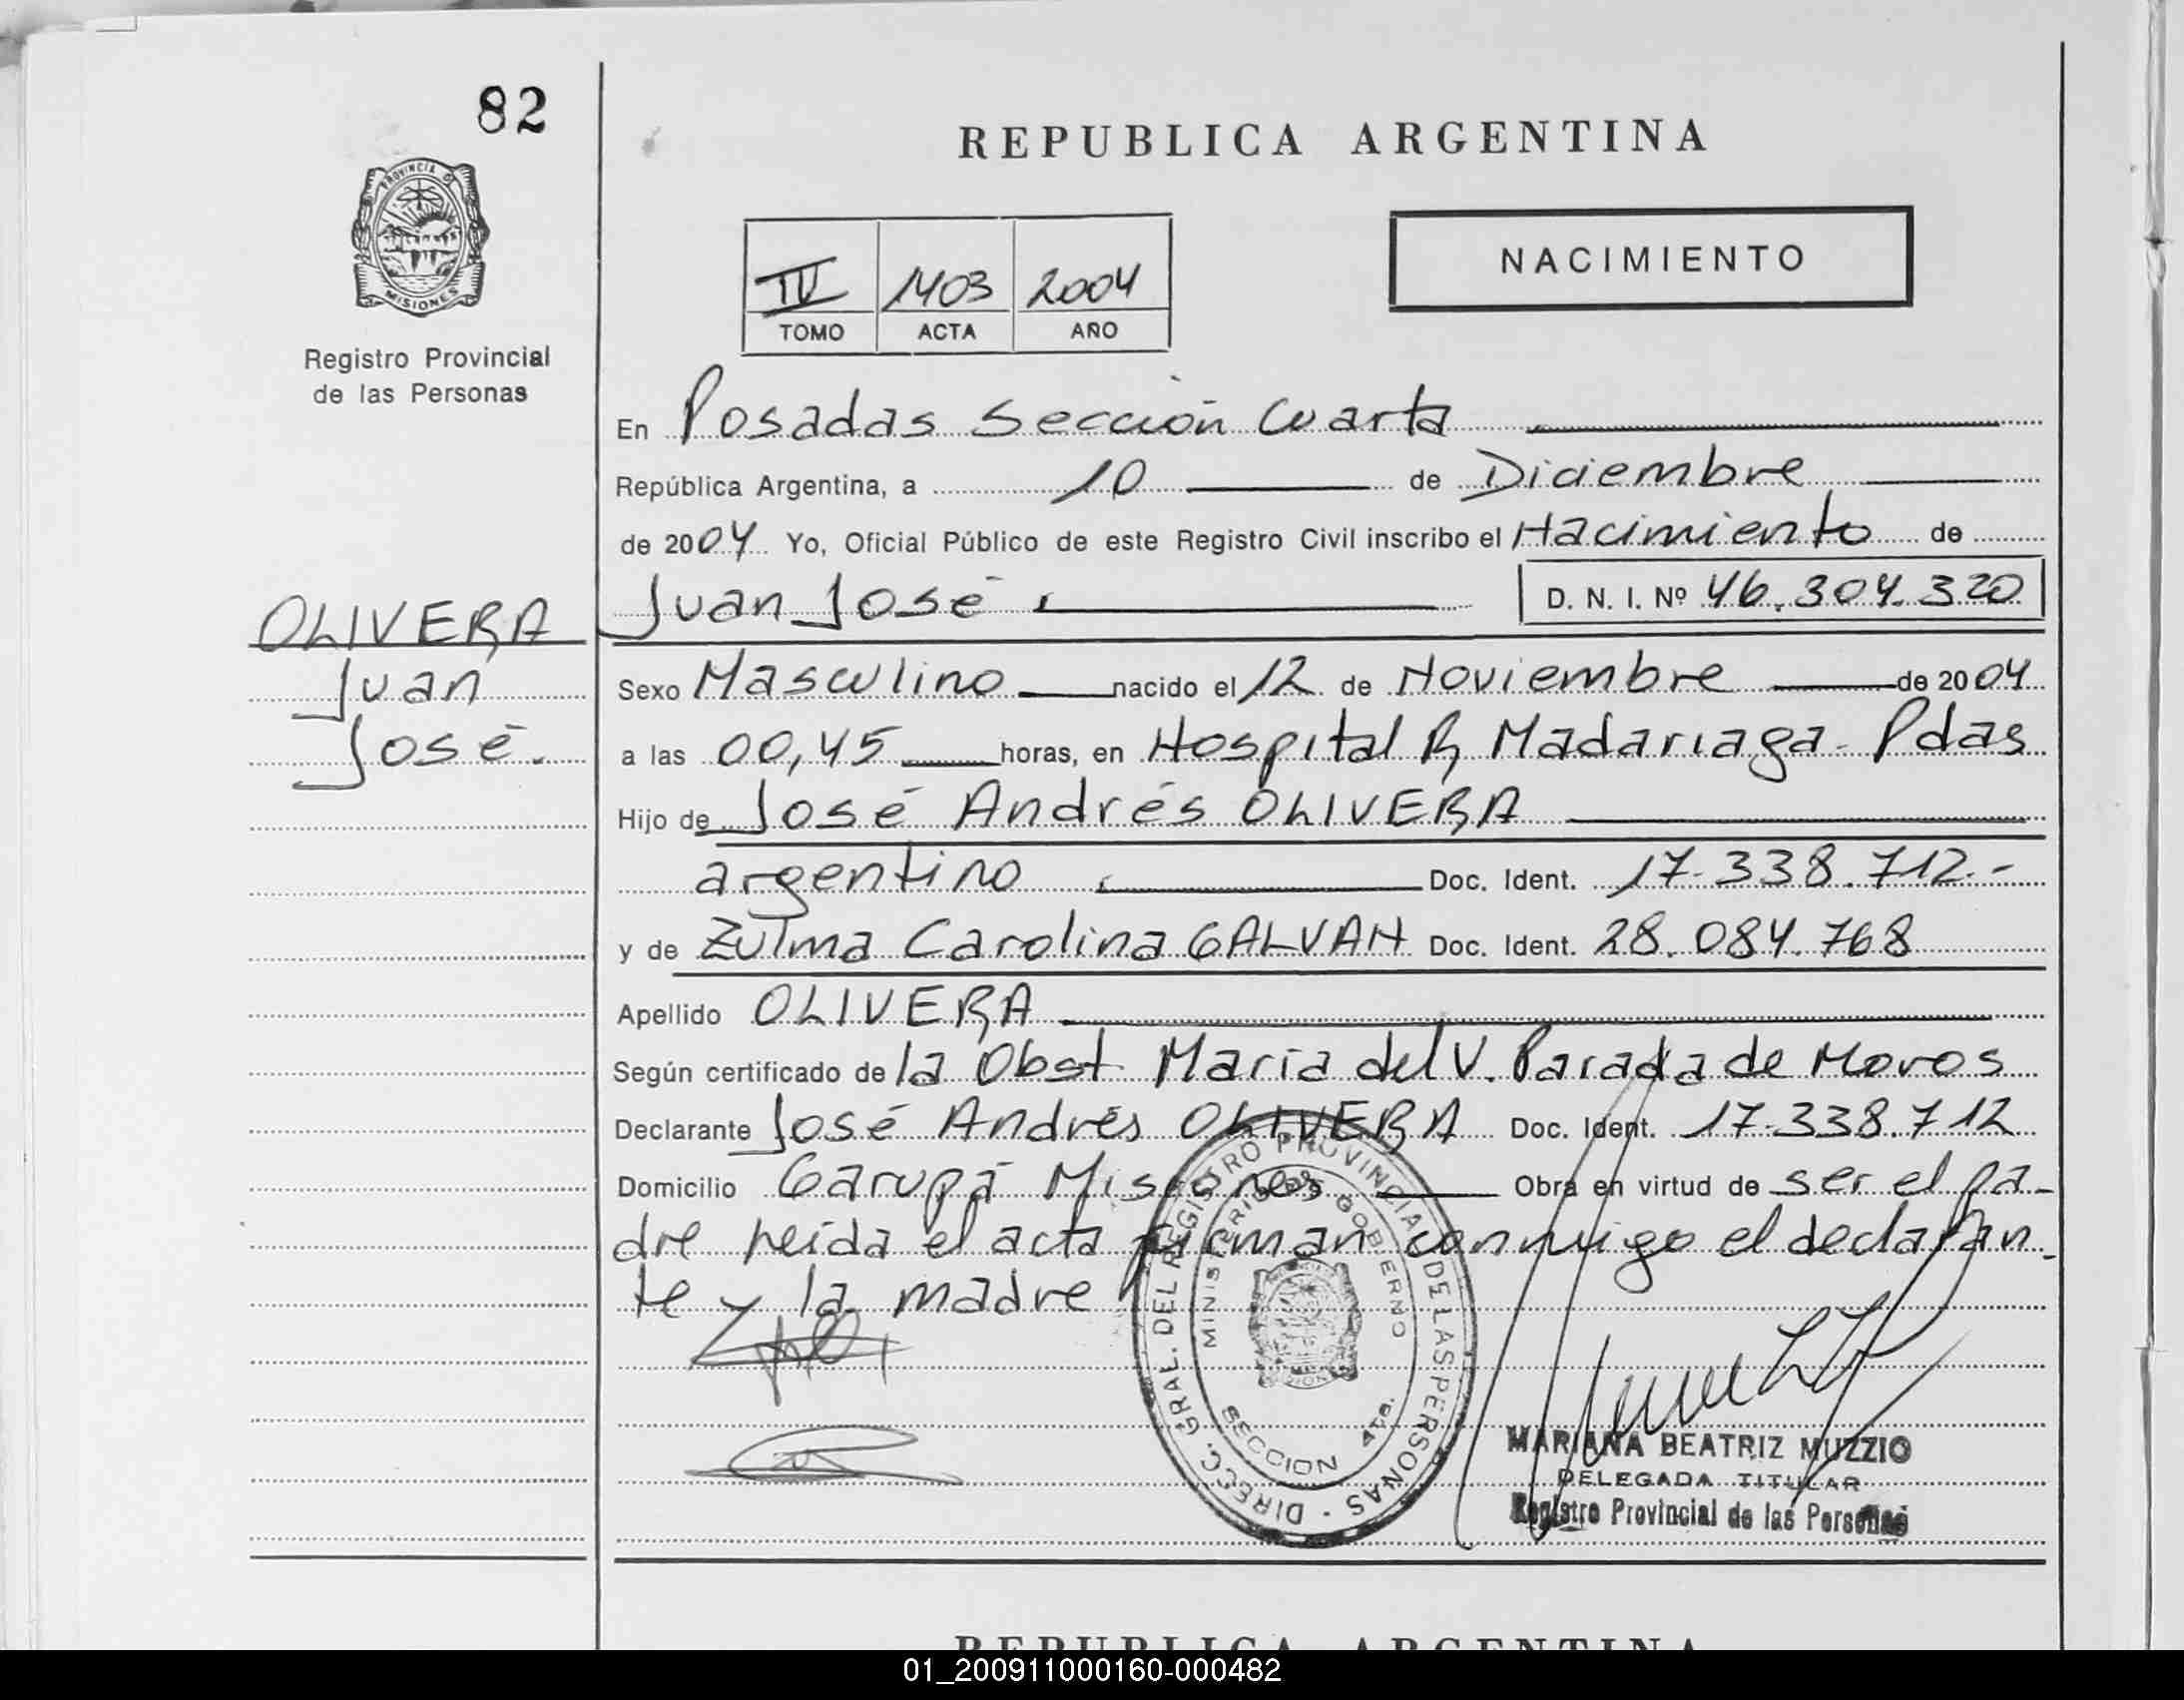 82
REPUBLICA ARGENTINA
PROVINCIA D
MISIONES
Registro Provincial
de las Personas
NACIMIENTO
IV 1403 2004
TOMO ACTA AÑO
En Posadas Sección Cuarta
República Argentina, a 10 de Diciembre
de 2004 Yo, Oficial Público de este Registro Civil inscribo el Nacimiento de
Juan José D. N. I. Nº 46.304.320
OLIVERA
Juan
José.
Sexo Masculino nacido el 12 de Noviembre de 2004
a las 00,45 horas, en Hospital R, Madariaga - Pdas
Hijo de José Andrés OLIVERA
argentino Doc. Ident. 17.338.712.-
y de Zulma Carolina GALVAN Doc. Ident. 28.084.768
Apellido OLIVERA
Según certificado de la Obst María del V. Parada de Moros
Declarante José Andrés OLIVERA Doc. Ident. 17.338.712
Domicilio Garupá Misiones Obra en virtud de ser el pa-
dre Leida el acta firman conmigo el declaran-
te y la madre
DIRECC. GRAL. DEL REGISTRO PROVINCIAL DE LAS PERSONAS -
MINISTERIO DE GOBIERNO
SECCION 4ta.
MARIANA BEATRIZ MUZZIO
DELEGADA TITULAR
Registro Provincial de las Personas
REPUBLICA ARGENTINA
01_200911000160-000482